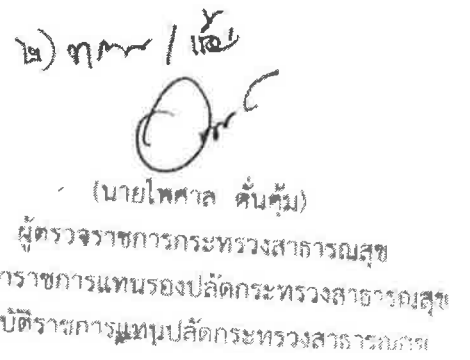 ๒) ทราบ /
(นายไพศาล ดั่นคุ้ม)
ผู้ตรวจราชการกระทรวงสาธารณสุข
ราชการแทนรองปลัดกระทรวงสาธารณสุข
บัติราชการแทนปลัดกระทรวงสาธารณสุข